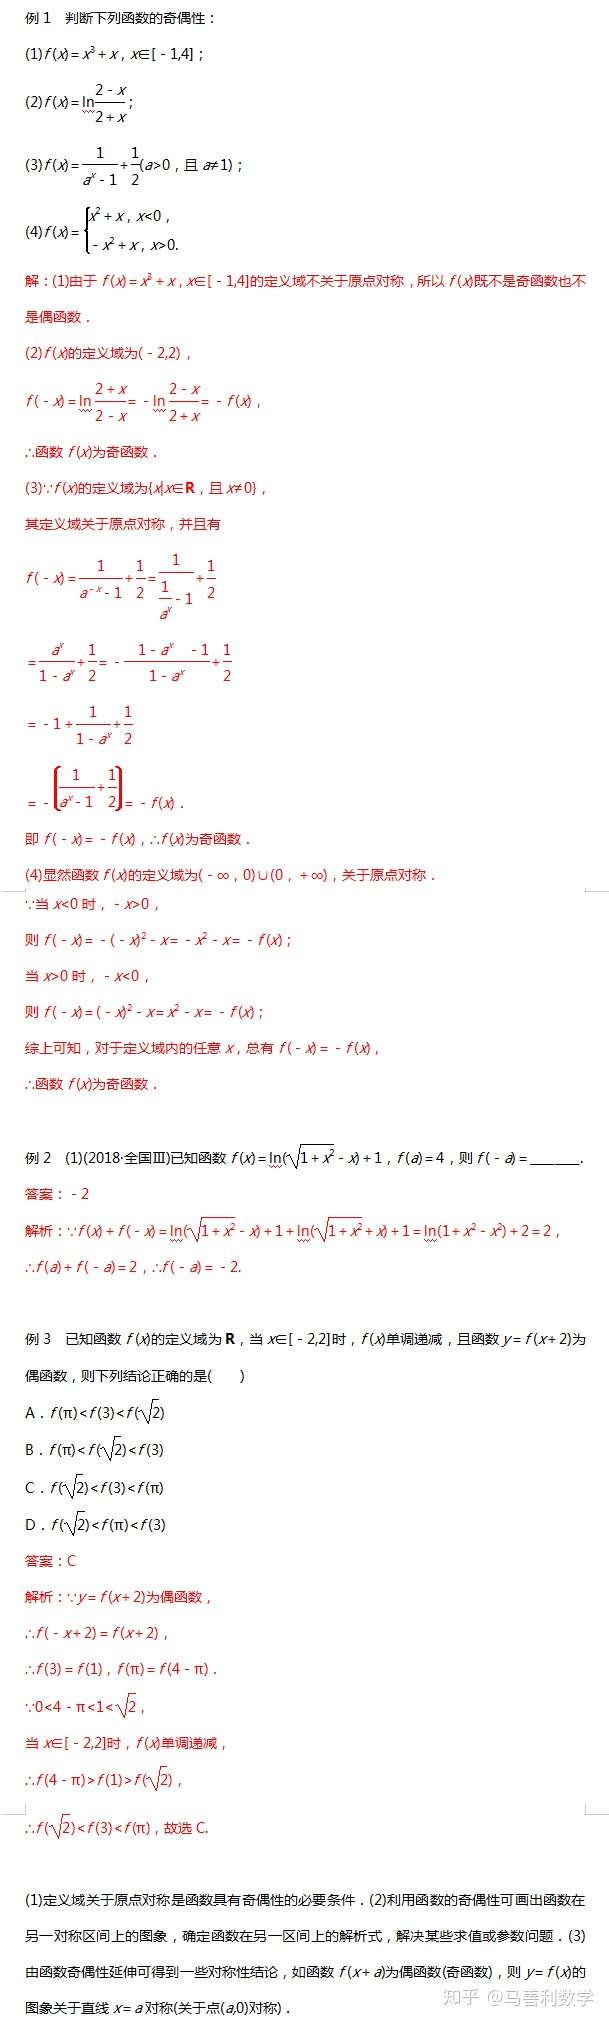 例 1 判断下列函数的奇偶性：
(1)f(x)=x³+x，x∈[-1,4]；
(2)f(x)=ln\frac{2-x}{2+x}；
(3)f(x)=\frac{1}{a^x-1}+\frac{1}{2}(a>0，且 a≠1)；
(4)f(x)=\begin{cases}x²+x，x<0，\\-x²+x，x>0.\end{cases}
解：(1)由于 f(x)=x³+x，x∈[-1,4]的定义域不关于原点对称，所以 f(x)既不是奇函数也不
是偶函数．
(2)f(x)的定义域为(-2,2)，
f(-x)=ln\frac{2+x}{2-x}=-ln\frac{2-x}{2+x}=-f(x)，
∴函数 f(x)为奇函数．
(3)∵f(x)的定义域为{x|x∈R，且 x≠0}，
其定义域关于原点对称，并且有
f(-x)=\frac{1}{a^{-x}-1}+\frac{1}{2}=\frac{1}{\frac{1}{a^x}-1}+\frac{1}{2}
=\frac{a^x}{1-a^x}+\frac{1}{2}=-\frac{1-a^x -1}{1-a^x}+\frac{1}{2}
=-1+\frac{1}{1-a^x}+\frac{1}{2}
=-\left[\frac{1}{a^x-1}+\frac{1}{2}\right]=-f(x)．
即 f(-x)=-f(x)，∴f(x)为奇函数．
(4)显然函数 f(x)的定义域为(-∞，0)∪(0，+∞)，关于原点对称．
∵当 x<0 时，-x>0，
则 f(-x)=-(-x)²-x=-x²-x=-f(x)；
当 x>0 时，-x<0，
则 f(-x)=(-x)²-x=x²-x=-f(x)；
综上可知，对于定义域内的任意 x，总有 f(-x)=-f(x)，
∴函数 f(x)为奇函数．
例 2 (1)(2018·全国Ⅲ)已知函数 f(x)=ln(\sqrt{1+x²}-x)+1，f(a)=4，则 f(-a)=______.
答案：-2
解析：∵f(x)+f(-x)=ln(\sqrt{1+x²}-x)+1+ln(\sqrt{1+x²}+x)+1=ln(1+x²-x²)+2=2，
∴f(a)+f(-a)=2，∴f(-a)=-2.
例 3 已知函数 f(x)的定义域为 R，当 x∈[-2,2]时，f(x)单调递减，且函数 y=f(x+2)为
偶函数，则下列结论正确的是( )
A．f(π)<f(3)<f(√2)
B．f(π)<f(√2)<f(3)
C．f(√2)<f(3)<f(π)
D．f(√2)<f(π)<f(3)
答案：C
解析：∵y=f(x+2)为偶函数，
∴f(-x+2)=f(x+2)，
∴f(3)=f(1)，f(π)=f(4-π)．
∵0<4-π<1<√2，
当 x∈[-2,2]时，f(x)单调递减，
∴f(4-π)>f(1)>f(√2)，
∴f(√2)<f(3)<f(π)，故选 C.
(1)定义域关于原点对称是函数具有奇偶性的必要条件．(2)利用函数的奇偶性可画出函数在
另一对称区间上的图象，确定函数在另一区间上的解析式，解决某些求值或参数问题．(3)
由函数奇偶性延伸可得到一些对称性结论，如函数 f(x+a)为偶函数(奇函数)，则 y=f(x)的
图象关于直线 x=a 对称(关于点(a,0)对称)．
知乎 @马善利数学